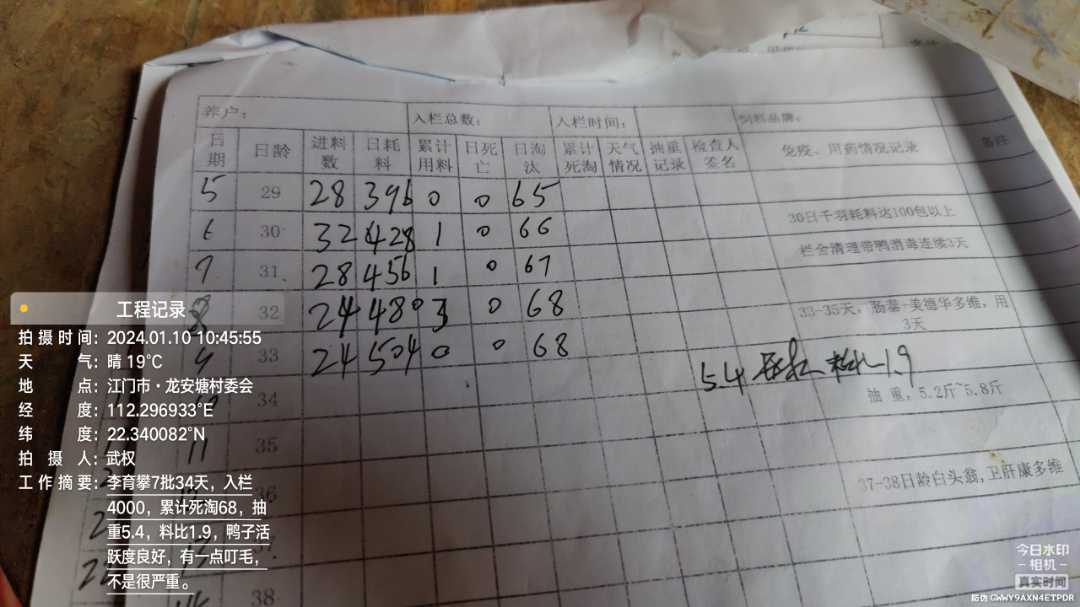 养户： 入栏总数： 入栏时间： 饲料品牌：
日期 日龄 进料数 日耗料 累计用料 日死亡 日淘汰 累计死淘 天气情况 抽重记录 检查人签名 免疫、用药情况记录 备注
5 29 28 396 0 0 65
6 30 32 428 1 0 66 30日千羽耗料达100包以上
7 31 28 456 1 0 67 栏舍清理带鸭消毒连续3天
8 32 24 480 3 0 68 33-35天，肠藜+美德华多维，用3天
9 33 24 504 0 0 68
5.4 料 1.9
34 抽重，5.2斤~5.8斤
11 35
36 37-38日龄白头翁,卫肝康多维
37
38
工程记录
拍摄时间：2024.01.10 10:45:55
天气：晴 19℃
地点：江门市·龙安塘村委会
经度：112.296933°E
纬度：22.340082°N
拍摄人：武权
工作摘要：李育攀7批34天，入栏
4000，累计死淘68，抽
重5.4，料比1.9，鸭子活
跃度良好，有一点叮毛，
不是很严重。
今日水印
-相机-
真实时间
防伪 CWWY9AXN4ETPDR